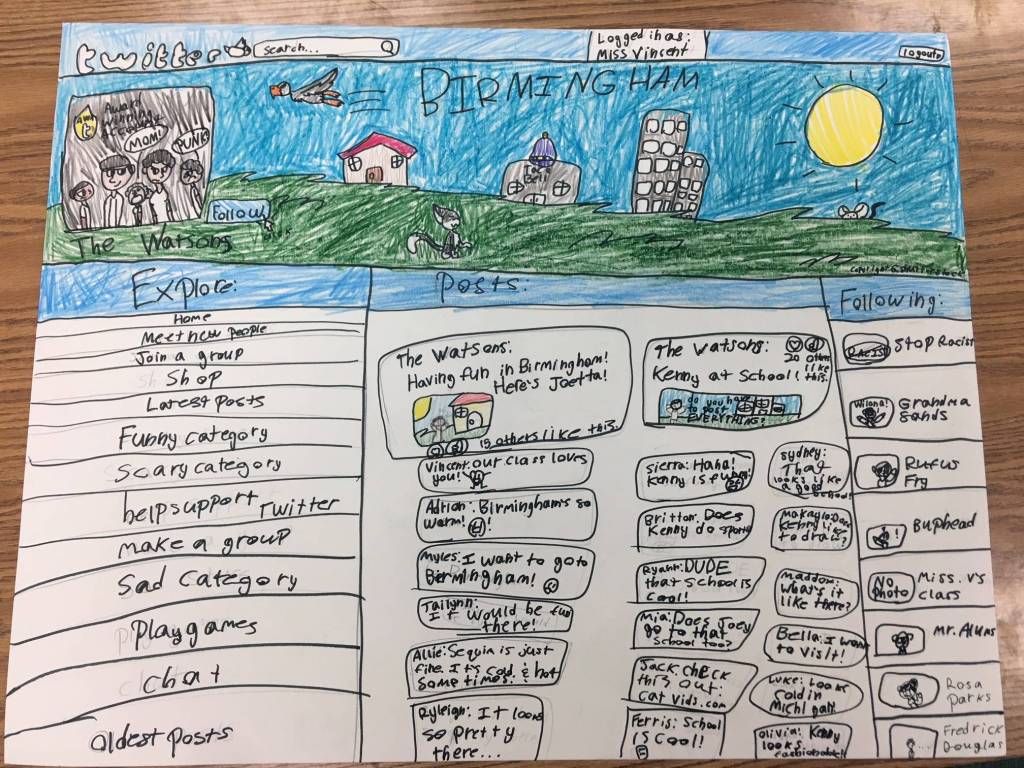 twitter
search...
Logged in as:
Miss Vincent
logout
BIRMINGHAM
Award
winning
MOM!
PUNK
Follow
The Watsons
Explore:
Home
Meet new people
Join a group
Shop
Latest Posts
Funny category
Scary category
help support Twitter
make a group
Sad category
Play games
chat
Oldest Posts
Posts:
The Watsons:
Having fun in Birmingham!
Here's Joetta!
19 others like this.
Vincent: our class loves
you!
Adrian: Birmingham's so
warm!
Myles: I want to go to
Birmingham!
Tailynn:
It would be fun
there!
Allie: Sequin is just
fine. It's cold & hot
some times!
Ryleigh: It looks
so pretty
there...
The Watsons:
20 others
like
this.
Kenny at School!
do you have
to post
EVERYTHING?
Sierra: Haha!
Kenny is funny!
Britton: Does
Kenny do sports
Ryann: DUDE
that school is
cool!
Mia: Does Joey
go to that
school too?
Jack: check
this out:
catvids.com
Ferris: School
is cool!
Sydney:
That
looks like
a good
school!
Makayla: Does
Kenny like
to draw?
Maddox:
What's it
like there?
Bella: I want
to visit!
Luke: Looks
cold in
Michigan!
Olivia: Kenny
looks
fashionable!!
Following:
RACIST
Stop Racist
Wilona!
Grandma
Sands
Rufus
Fry
Buphead
No
Photo
Miss. V's
class
Mr. Alums
Rosa
Parks
Fredrick
Douglas